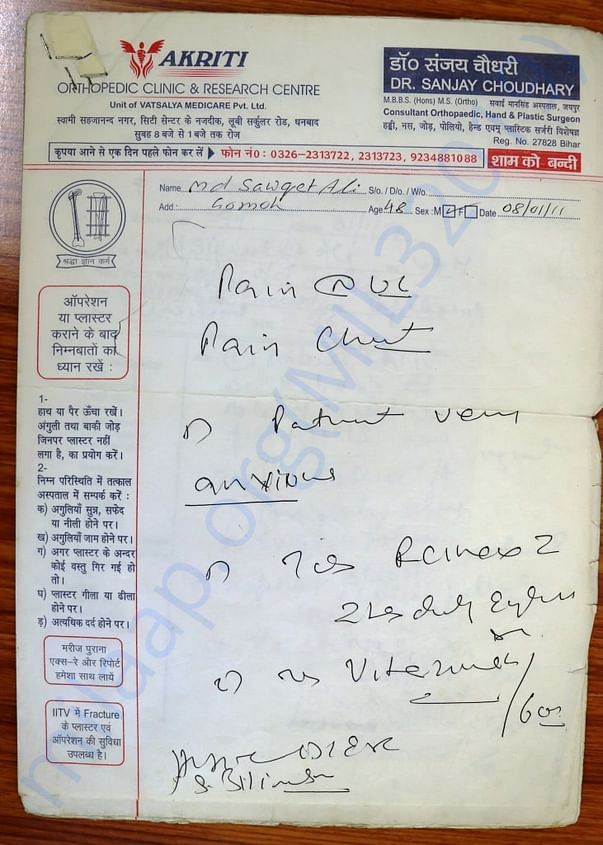 AKRITI
ORTHOPEDIC CLINIC & RESEARCH CENTRE
Unit of VATSALYA MEDICARE Pvt. Ltd.
स्वामी सहजानन्द नगर, सिटी सेन्टर के नजदीक, लूबी सर्कुलर रोड, धनबाद
सुबह 8 बजे से 1 बजे तक रोज
डॉ० संजय चौधरी
DR. SANJAY CHOUDHARY
M.B.B.S. (Hons) M.S. (Ortho) सवाई मानसिंह अस्पताल, जयपुर
Consultant Orthopaedic, Hand & Plastic Surgeon
हड्डी, नस, जोड़, पोलियो, हैन्ड एवम् प्लास्टिक सर्जरी विशेषज्ञ
Reg. No. 27828 Bihar
कृपया आने से एक दिन पहले फोन कर लें फोन नं० : 0326-2313722, 2313723, 9234881088
शाम को बन्दी
Name Md Sawget Ali S/o. / D/o. / W/o.
Add : Gomoh Age 48 Sex : M F Date 08/01/11
श्रद्धा ज्ञान कर्म
ऑपरेशन
या प्लास्टर
कराने के बाद
निम्नबातों का
ध्यान रखें :
1-
हाथ या पैर ऊँचा रखें।
अंगुली तथा बाकी जोड़
जिनपर प्लास्टर नहीं
लगा है, का प्रयोग करें।
2-
निम्न परिस्थिति में तत्काल
अस्पताल में सम्पर्क करें :
क) अंगुलियाँ सुन्न, सफेद
या नीली होने पर।
ख) अंगुलियाँ जाम होने पर।
ग) अगर प्लास्टर के अन्दर
कोई वस्तु गिर गई हो
तो।
घ) प्लास्टर गीला या ढीला
होने पर।
ड़) अत्यधिक दर्द होने पर।
मरीज पुराना
एक्स-रे और रिपोर्ट
हमेशा साथ लायें
IITV में Fracture
के प्लास्टर एवं
ऑपरेशन की सुविधा
उपलब्ध है।
Pain
Pain Chest
Patient very
anxious